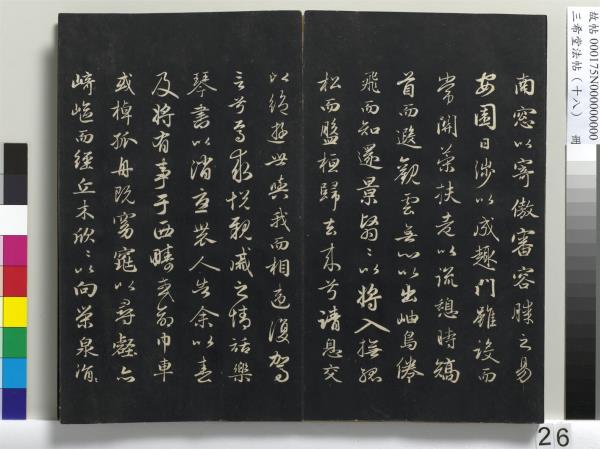 南窓以寄傲審容膝之易
安園日涉以成趣門雖設而
常關策扶老以流憩時矯
首而遐觀雲無心以出岫鳥倦
飛而知還景翳〻以將入撫孤
松而盤桓歸去來兮請息交
以絶遊世與我而相遺復駕
言兮焉求悅親戚之情話樂
琴書以消憂農人告余以春
及將有事于西疇或命巾車
或棹孤舟既窈窕以尋壑亦
崎嶇而經丘木欣〻以向榮泉涓
故帖 000175N000000000
三希堂法帖（十八） 冊
26